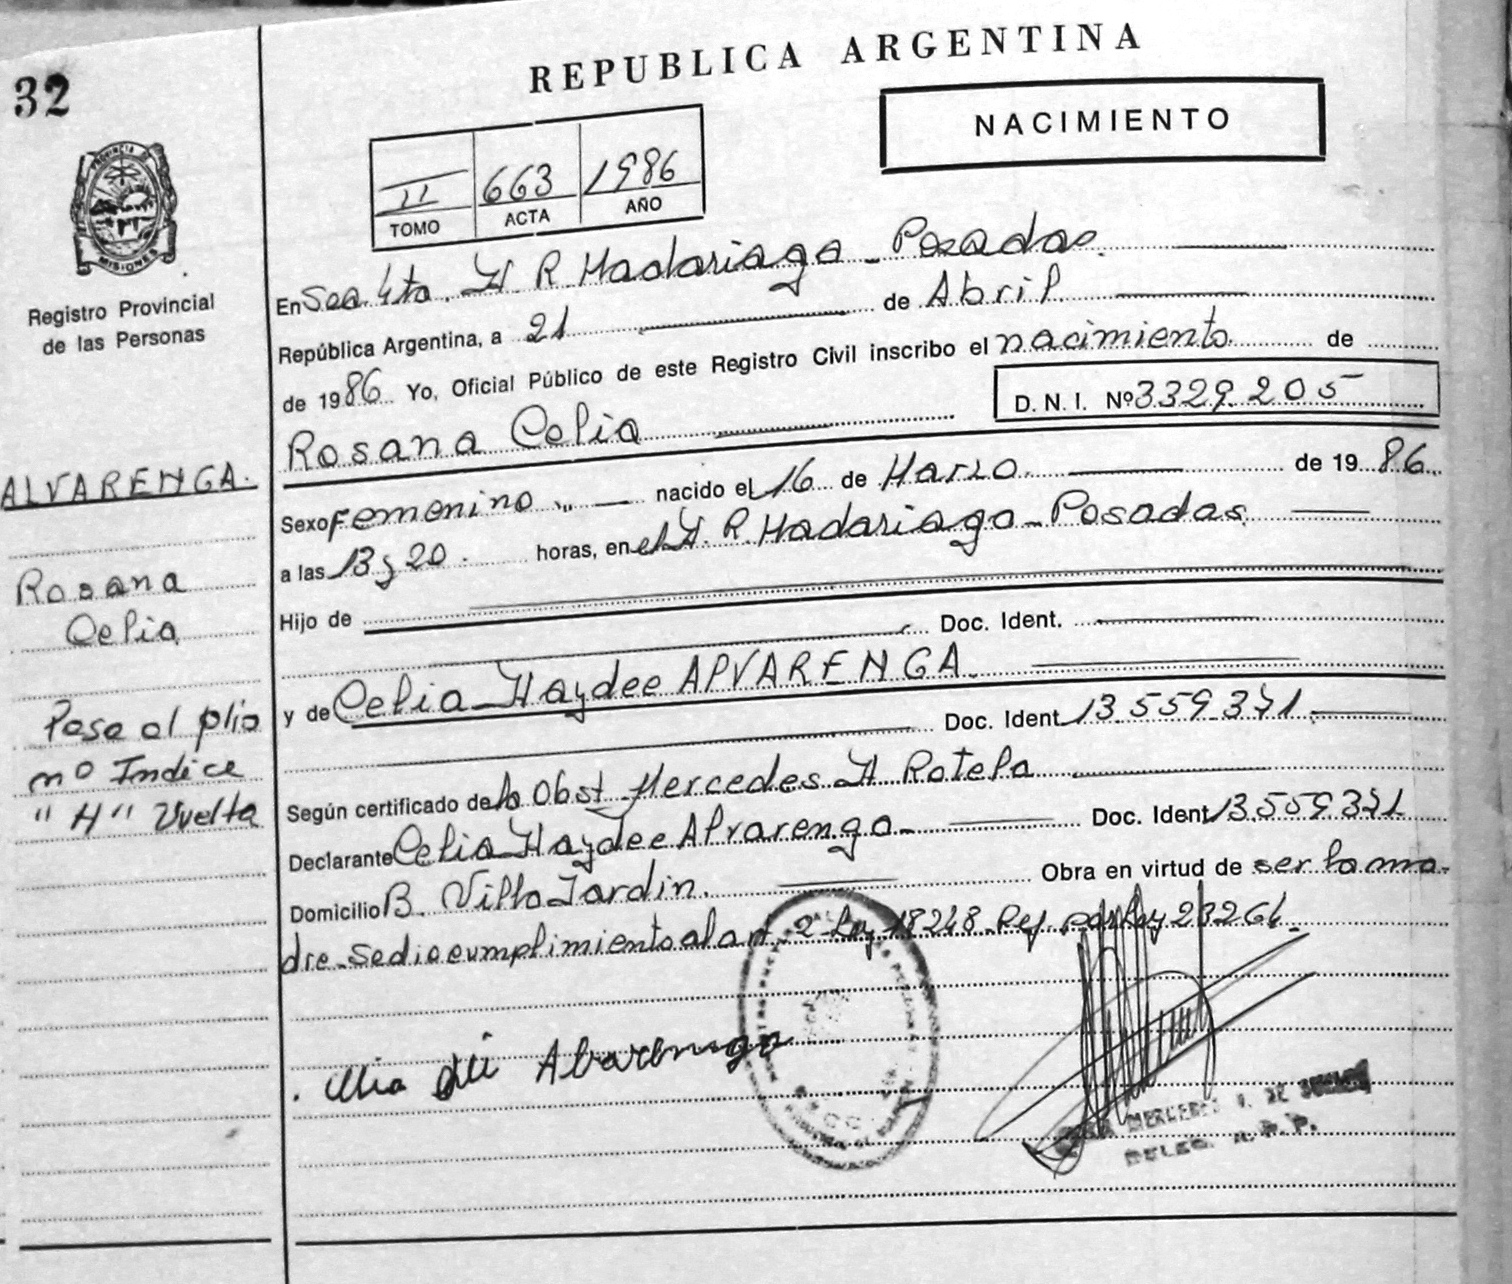 32
REPUBLICA ARGENTINA
NACIMIENTO
II 663 1986
TOMO ACTA AÑO
PROVINCIA DE
MISIONES
Registro Provincial
de las Personas
En Sec. 4ta. H. R. Madariaga - Posadas.
República Argentina, a 21 de Abril
de 1986 Yo, Oficial Público de este Registro Civil inscribo el nacimiento de
D. N. I. Nº 3329205
Rosana Celia
ALVARENGA.
Sexo Femenino nacido el 16 de Marzo. de 19 86
a las 13 y 20. horas, en el H. R. Madariaga - Posadas
Rosana
Celia
Hijo de
Doc. Ident.
y de Celia Haydee ALVARENGA.
Doc. Ident 13.559.371
Pasa al plio
nº Indice
"H" Vuelta
Según certificado de la Obst Mercedes H Rotela
Declarante Celia Haydee Alvarenga - Doc. Ident 13.559.371
Domicilio B. Villa Jardin. Obra en virtud de ser la ma-
dre - se dio cumplimiento al art. 2 Ley 18248 - Ref. por Ley 23264.
Alvarenga
MERCEDES DE
DELEG. R. P. P.